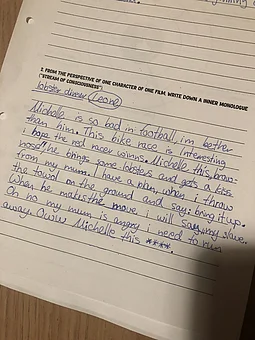 2. FROM THE PERSPECTIVE OF ONE CHARACTER OF ONE FILM, WRITE DOWN A INNER MONOLOGUE
("STREAM OF CONSCIOUSNESS")
lobster dinner (Leone)
Michelle is so bad in football im bether
than him. This bike race is interesting
i hope the red racer wins. Michelle this brown-
nose, he brings some lobsters and gets a kiss
from my mum. I have a plan, when i throw
the towel on the ground and say: bring it up.
When he makes the move i will say: my slave.
Oh no my mum is angry i need to run
away. Oww Michelle this ****.